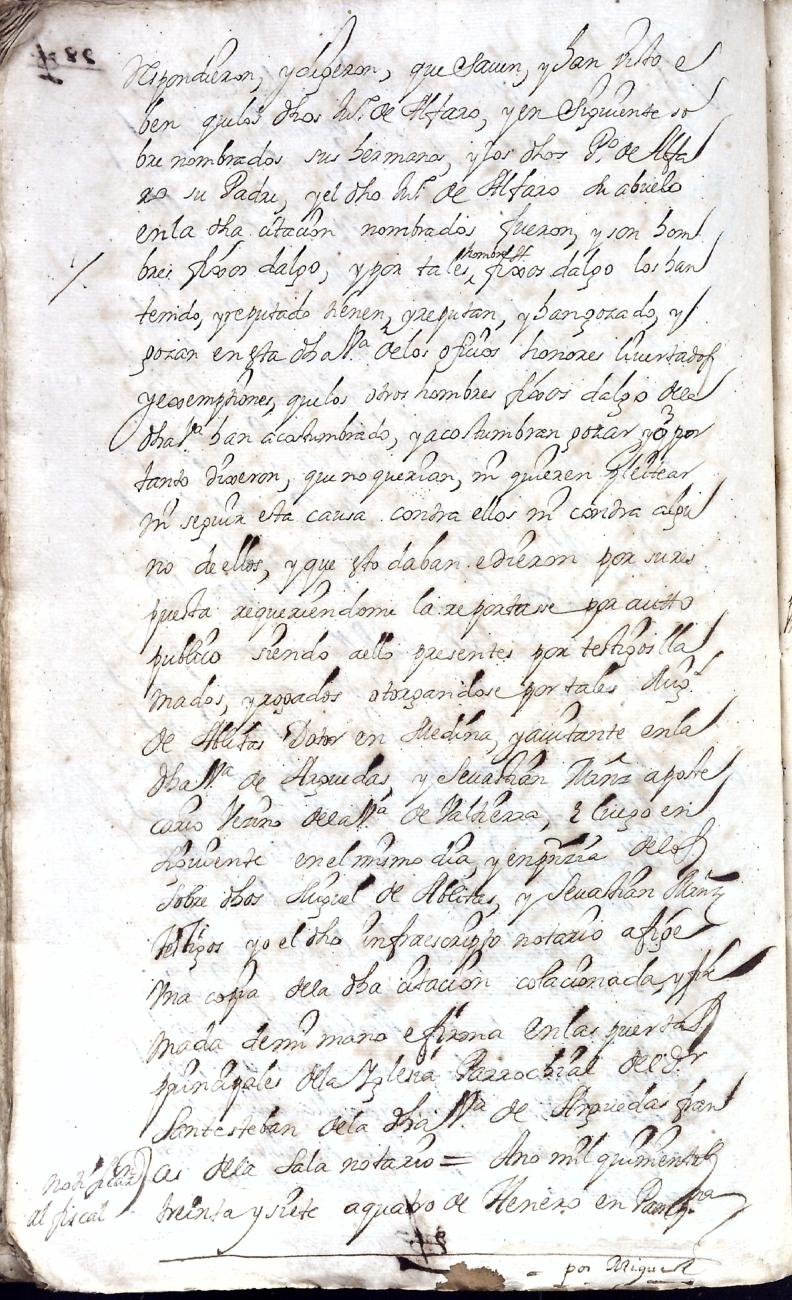 respondieron, y dixeron, que Saven, y han visto e
ben que los dhos Ju.º de Alfaro, y en Siguiente so
bre nombrados sus hermanos, y los dhos P.º de Alfa
ro su Padre, y el dho Ju.º de Alfaro su abuelo
en la dha citacion nombrados fueron, y son hom
bres fixos dalgo, y por tales hombres fixos dalgo los han
tenido, y reputado tienen, y reputan, y han gozado, y
gozan en esta dha V.ª de los oficios honores livertades
y exsemptiones, que los otros hombres fixos dalgo de la
dha V.ª han acostumbrado, y acostumbran gozar y por
tanto dixeron, que no querian, ni quieren pleitear
ni seguir esta causa contra ellos ni contra algu
no de ellos, y que esto daban e dieron por su res
puesta requeriendome la reportase por autto
publico siendo a ello presentes por testigos lla
mados, y rogados otorgandose por tales Mig.l
de Ablitas Dotor en Medina, y avitante en la
dha V.ª de Arguedas, y Sevastian Mañz apote
cario Vezino de la V.ª de Valtierra, E luego en
siguiente en el mismo dia, y en pñzia de los
Sobre dhos Miguel de Ablitas, y Sevastian Mañz
testigos yo el dho infraescripto notario afige
una copia de la dha citacion colacionada, y fir
mada de mi mano e firma en las puertas
principales de la Yglesia Parrochial de S.r
Santesteban de la dha V.ª de Arguedas fran
ces de la Sala notario = Ano mil quinientos
treinta y siete a quatro de Henero en Pamp.na
notificazn
al fiscal
por Miguel